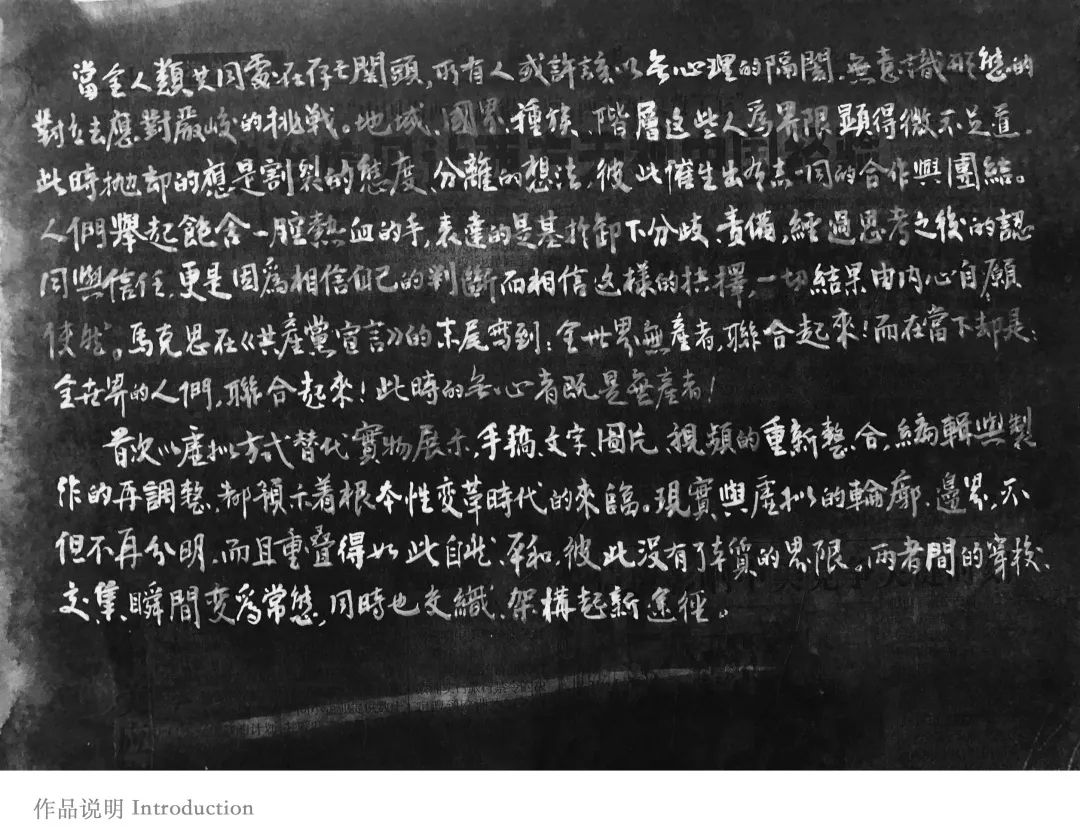 當全人類共同處在存亡關頭,所有人或許該以無心理的隔閡、無意識形態的
對立去應對嚴峻的挑戰。地域、國界、種族、階層这些人爲界限顯得微不足道,
此時拋却的應是割裂的態度、分離的想法,彼此催生出有志一同的合作與團結。
人們舉起飽含一腔熱血的手,表達的是基於卸下分歧、責備,經過思考之後的認
同與信任,更是因爲相信自己的判斷而相信这樣的抉擇,一切結果由内心自願
使然。馬克思在《共產黨宣言》的末尾寫到:全世界無產者,聯合起來!而在當下却是:
全世界的人們,聯合起來!此時的無心者既是無產者!
首次以虛拟方式替代實物展示,手稿、文字、圖片、視頻的重新整合,編輯與製
作的再調整,都預示着根本性变革時代的來臨。現實與虛拟的輪廓、邊界,不
但不再分明,而且重叠得如此自然、平和,彼此没有了本質的界限。兩者間的穿梭、
交集,瞬間变爲常態,同時也交織、架構起新途徑。
作品说明 Introduction